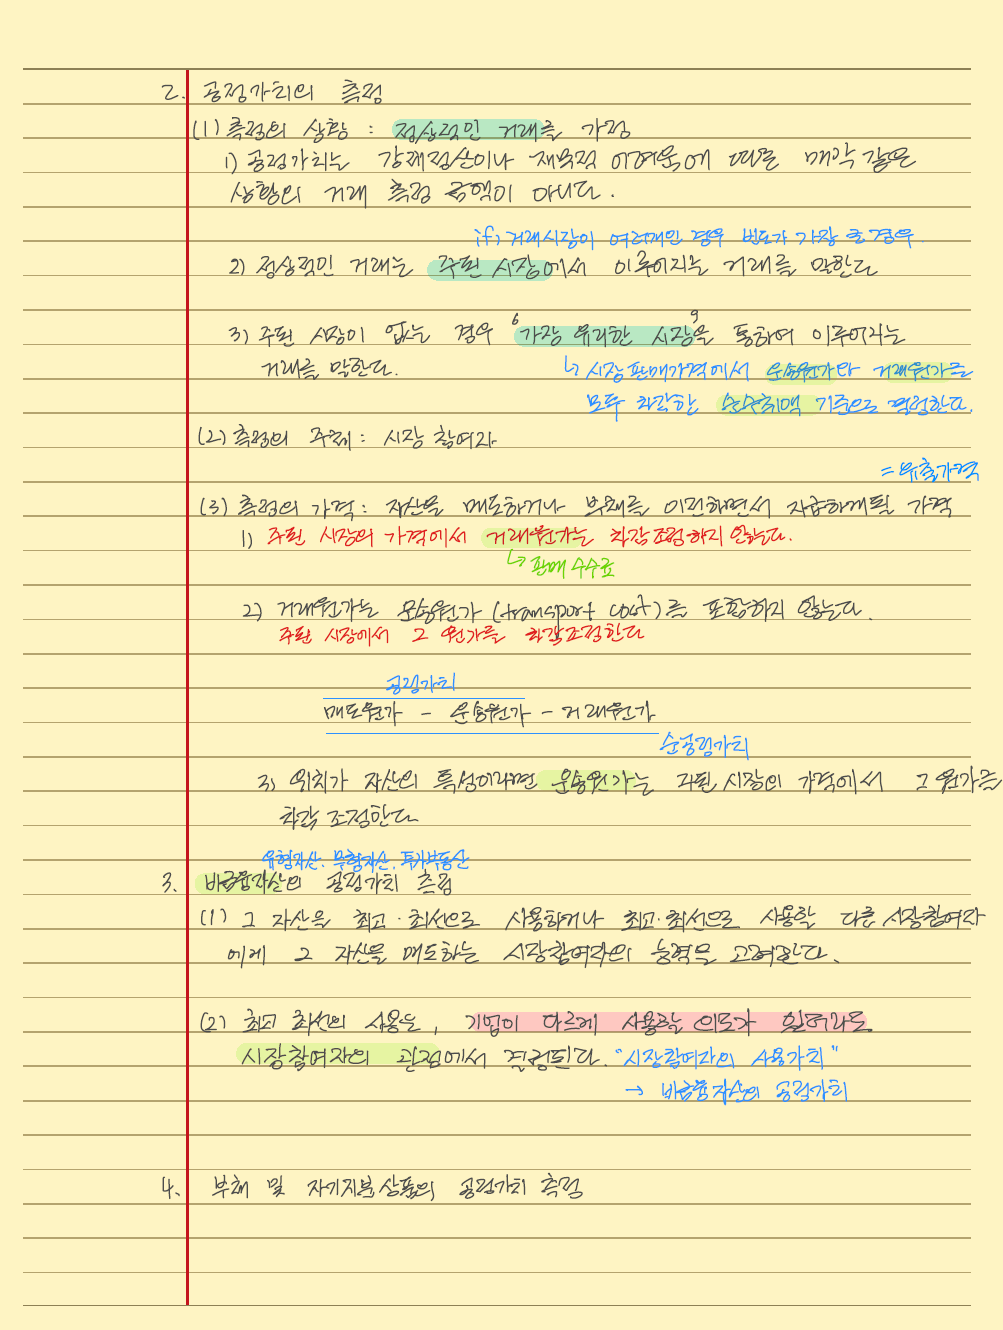 2. 공정가치의 측정
(1) 측정의 상황 : 정상적인 거래를 가정
1) 공정가치는 강제청산이나 재무적 어려움에 따른 매각 같은
상황의 거래 측정 금액이 아니다.
if) 거래시장이 여러개인 경우 빈도가 가장 큰 경우
2) 정상적인 거래는 주된 시장에서 이루어지는 거래를 말한다
3) 주된 시장이 없는 경우 '가장 유리한 시장'을 통하여 이루어지는
거래를 말한다.
↳ 시장 판매가격에서 운송원가와 거래원가를
모두 차감한 순수취액 기준으로 결정한다.
(2) 측정의 주체 : 시장 참여자
= 유출가격
(3) 측정의 가격 : 자산을 매도하거나 부채를 이전하면서 지급하게될 가격
1) 주된 시장의 가격에서 거래원가는 차감조정하지 않는다.
↳ 판매 수수료
2) 거래원가는 운송원가 (transport cost)를 포함하지 않는다.
주된 시장에서 그 원가를 차감조정한다
공정가치
매도원가 - 운송원가 - 거래원가
순공정가치
3) 위치가 자산의 특성이라면 운송원가는 주된 시장의 가격에서 그 원가를
차감 조정한다
유형자산. 무형자산. 투자부동산
3. 비금융자산의 공정가치 측정
(1) 그 자산을 최고·최선으로 사용하거나 최고·최선으로 사용할 다른 시장참여자
에게 그 자산을 매도하는 시장참여자의 능력을 고려한다.
(2) 최고 최선의 사용은, 기업이 다르게 사용할 의도가 있더라도
시장참여자의 관점에서 결정된다. "시장참여자의 사용가치"
→ 비금융자산의 공정가치
4. 부채 및 자기지분상품의 공정가치 측정